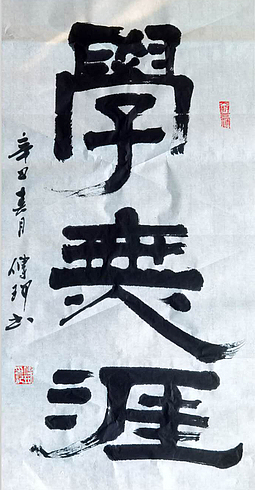 學無涯
辛丑春月